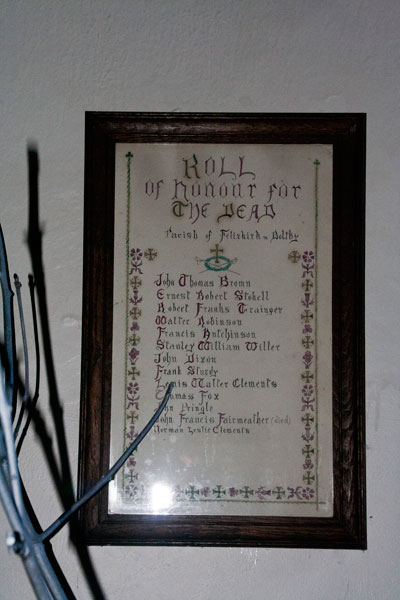 ROLL
of Honour for
THE DEAD
Parish of Felixkird w. Boltby
John Thomas Brown
Ernest Robert Stokell
Robert Franks Grainger
Walter Robinson
Francis Hutchinson
Stanley William Witter
John Dixon
Frank Sturdy
Lewis Walter Clements
Thomas Fox
John Pringle
John Francis Fairweather (died)
Norman Leslie Clements